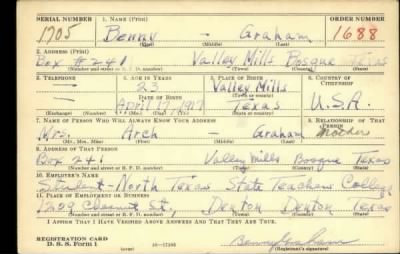 SERIAL NUMBER 1. NAME (Print) ORDER NUMBER
1705 Benny — Graham 1688
(First) (Middle) (Last)
2. ADDRESS (Print)
Box #241 Valley Mills Bosque Texas
(Number and street or R. F. D. number) (Town) (County) (State)
3. TELEPHONE 4. AGE IN YEARS 5. PLACE OF BIRTH 6. COUNTRY OF CITIZENSHIP
— 23 Valley Mills
DATE OF BIRTH (Town or county)
— April 17, 1917 Texas U.S.A.
(Exchange) (Number) (Mo.) (Day) (Yr.) (State or country)
7. NAME OF PERSON WHO WILL ALWAYS KNOW YOUR ADDRESS 8. RELATIONSHIP OF THAT PERSON
Mrs. Arch — Graham Mother
(Mr., Mrs., Miss) (First) (Middle) (Last)
9. ADDRESS OF THAT PERSON
Box 241 Valley Mills Bosque Texas
(Number and street or R. F. D. number) (Town) (County) (State)
10. EMPLOYER'S NAME
Student-North Texas State Teachers College
11. PLACE OF EMPLOYMENT OR BUSINESS
St., Denton Denton Texas
(Number and street or R. F. D. number) (Town) (County) (State)
I AFFIRM THAT I HAVE VERIFIED ABOVE ANSWERS AND THAT THEY ARE TRUE.
REGISTRATION CARD
D. S. S. Form 1 Benny Graham
(Registrant's signature)